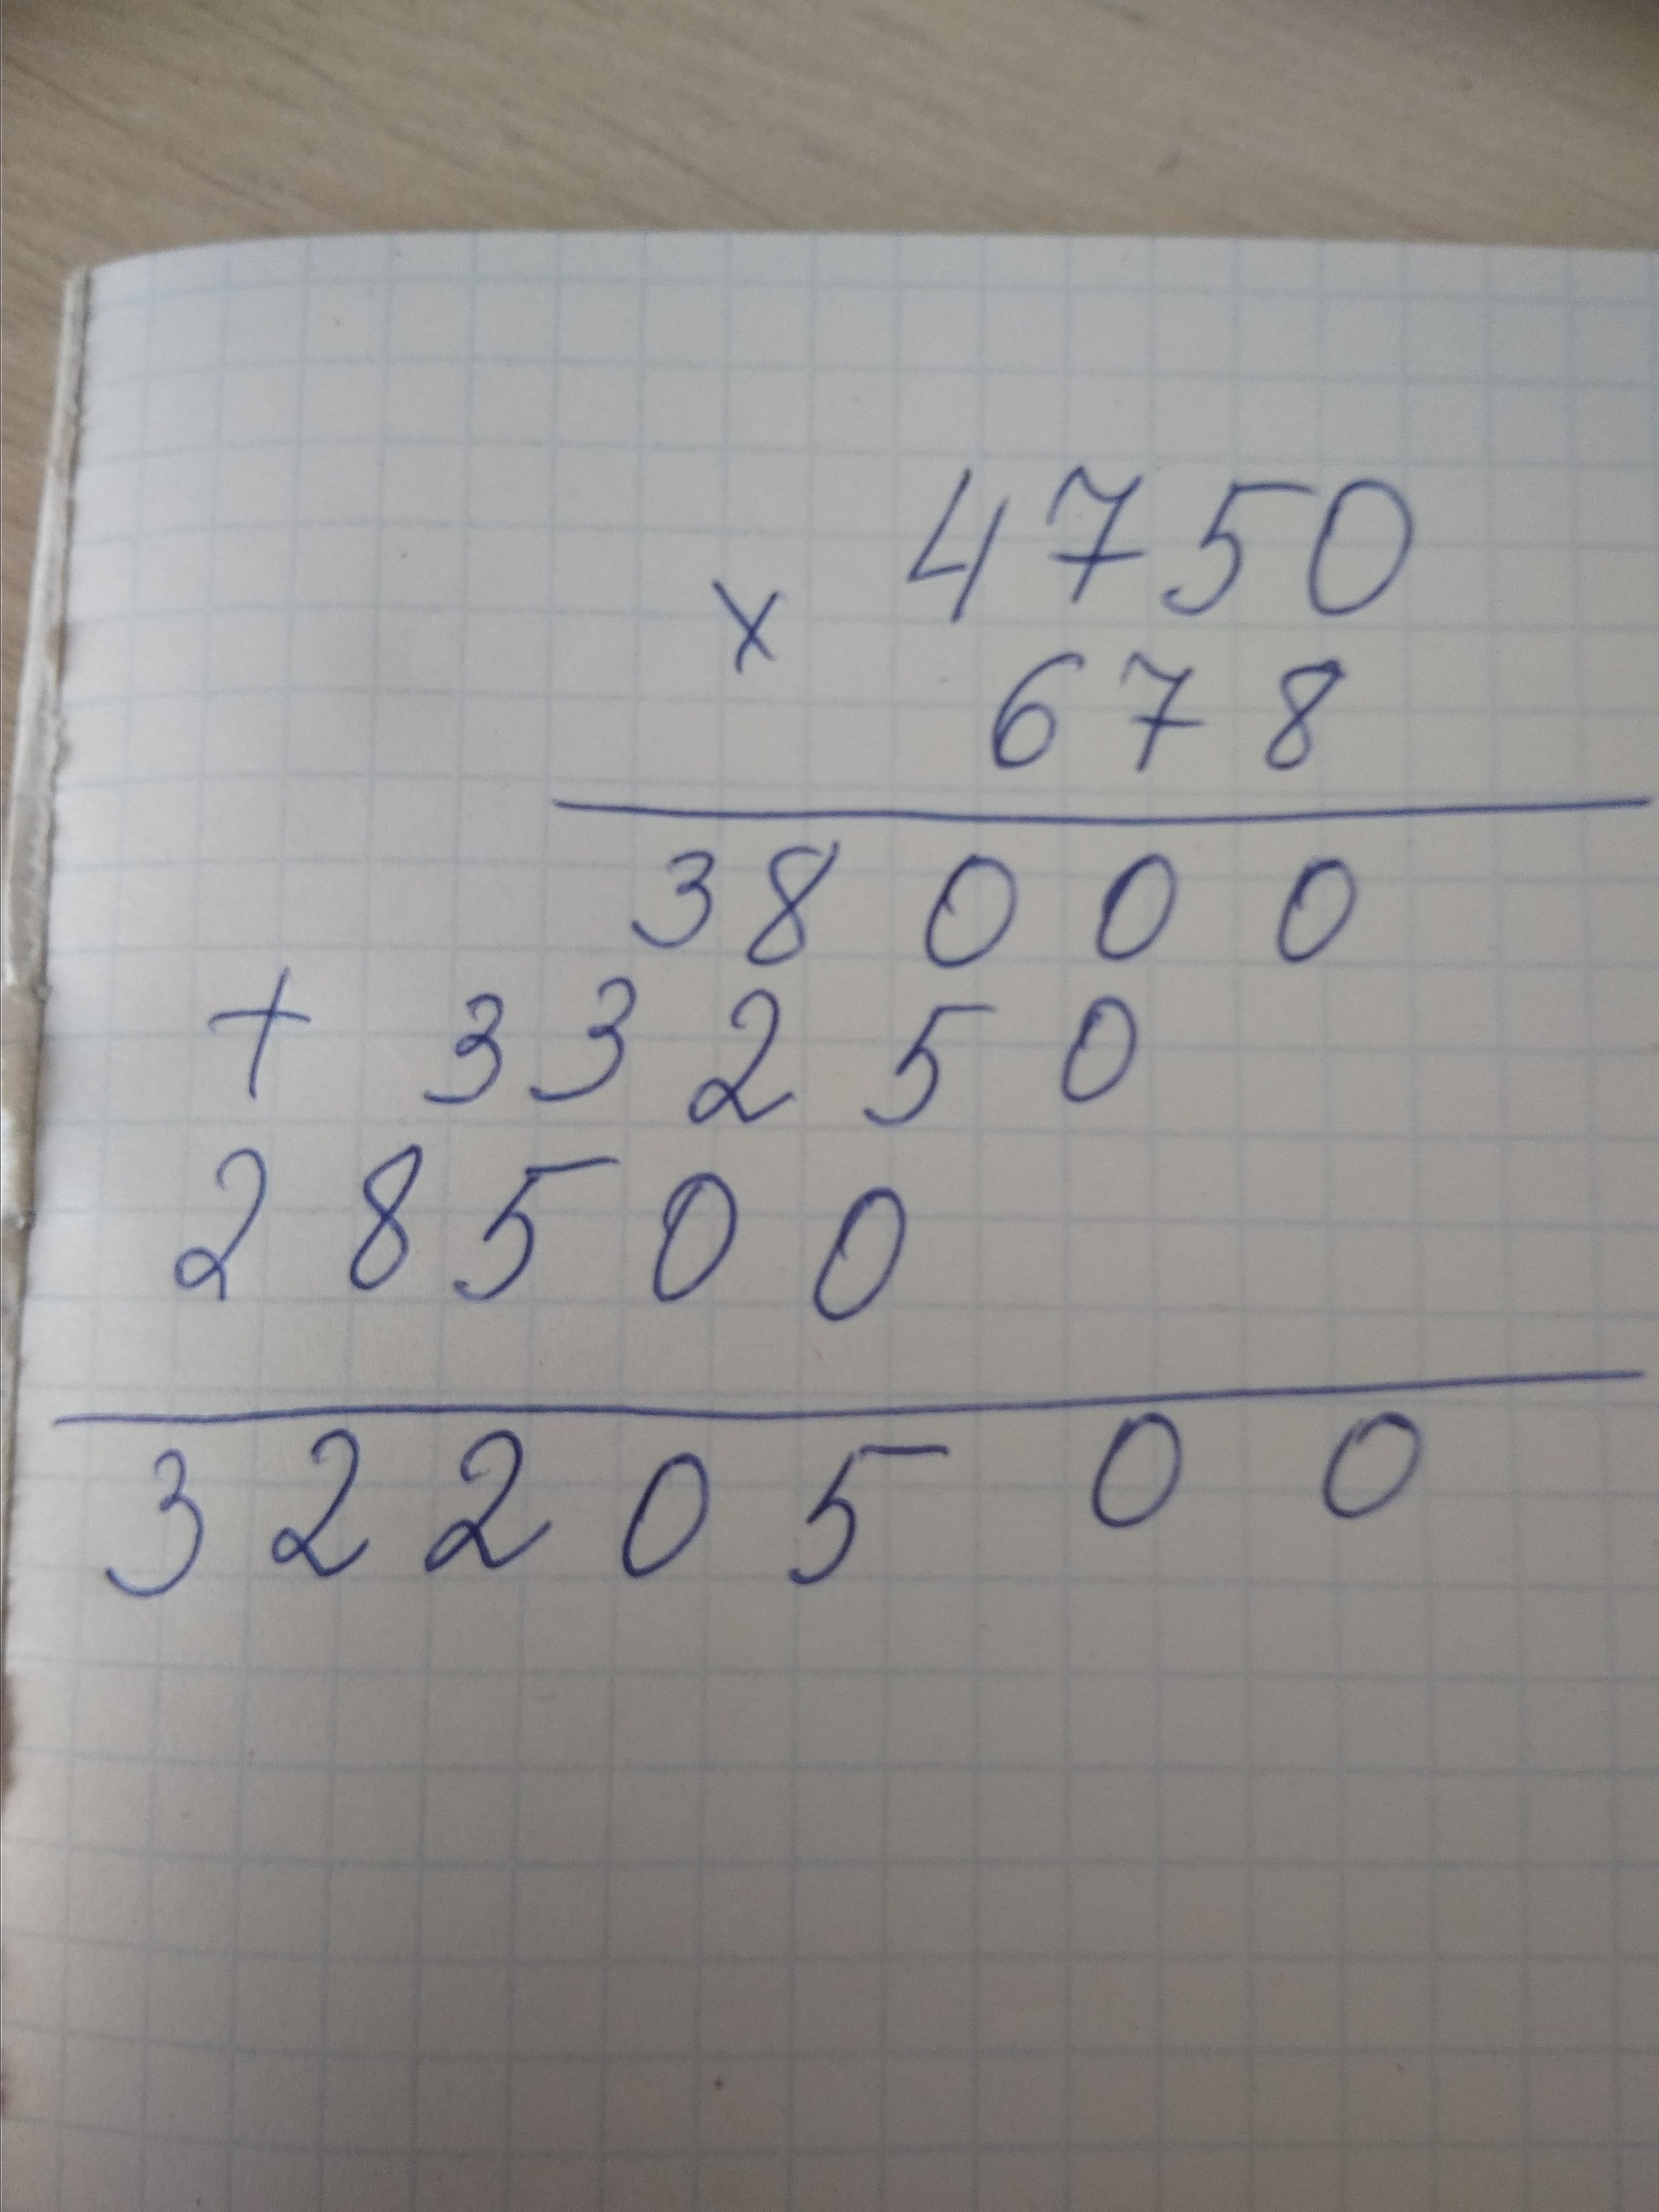 4750
× 678
38000
+ 33250
28500
3220500